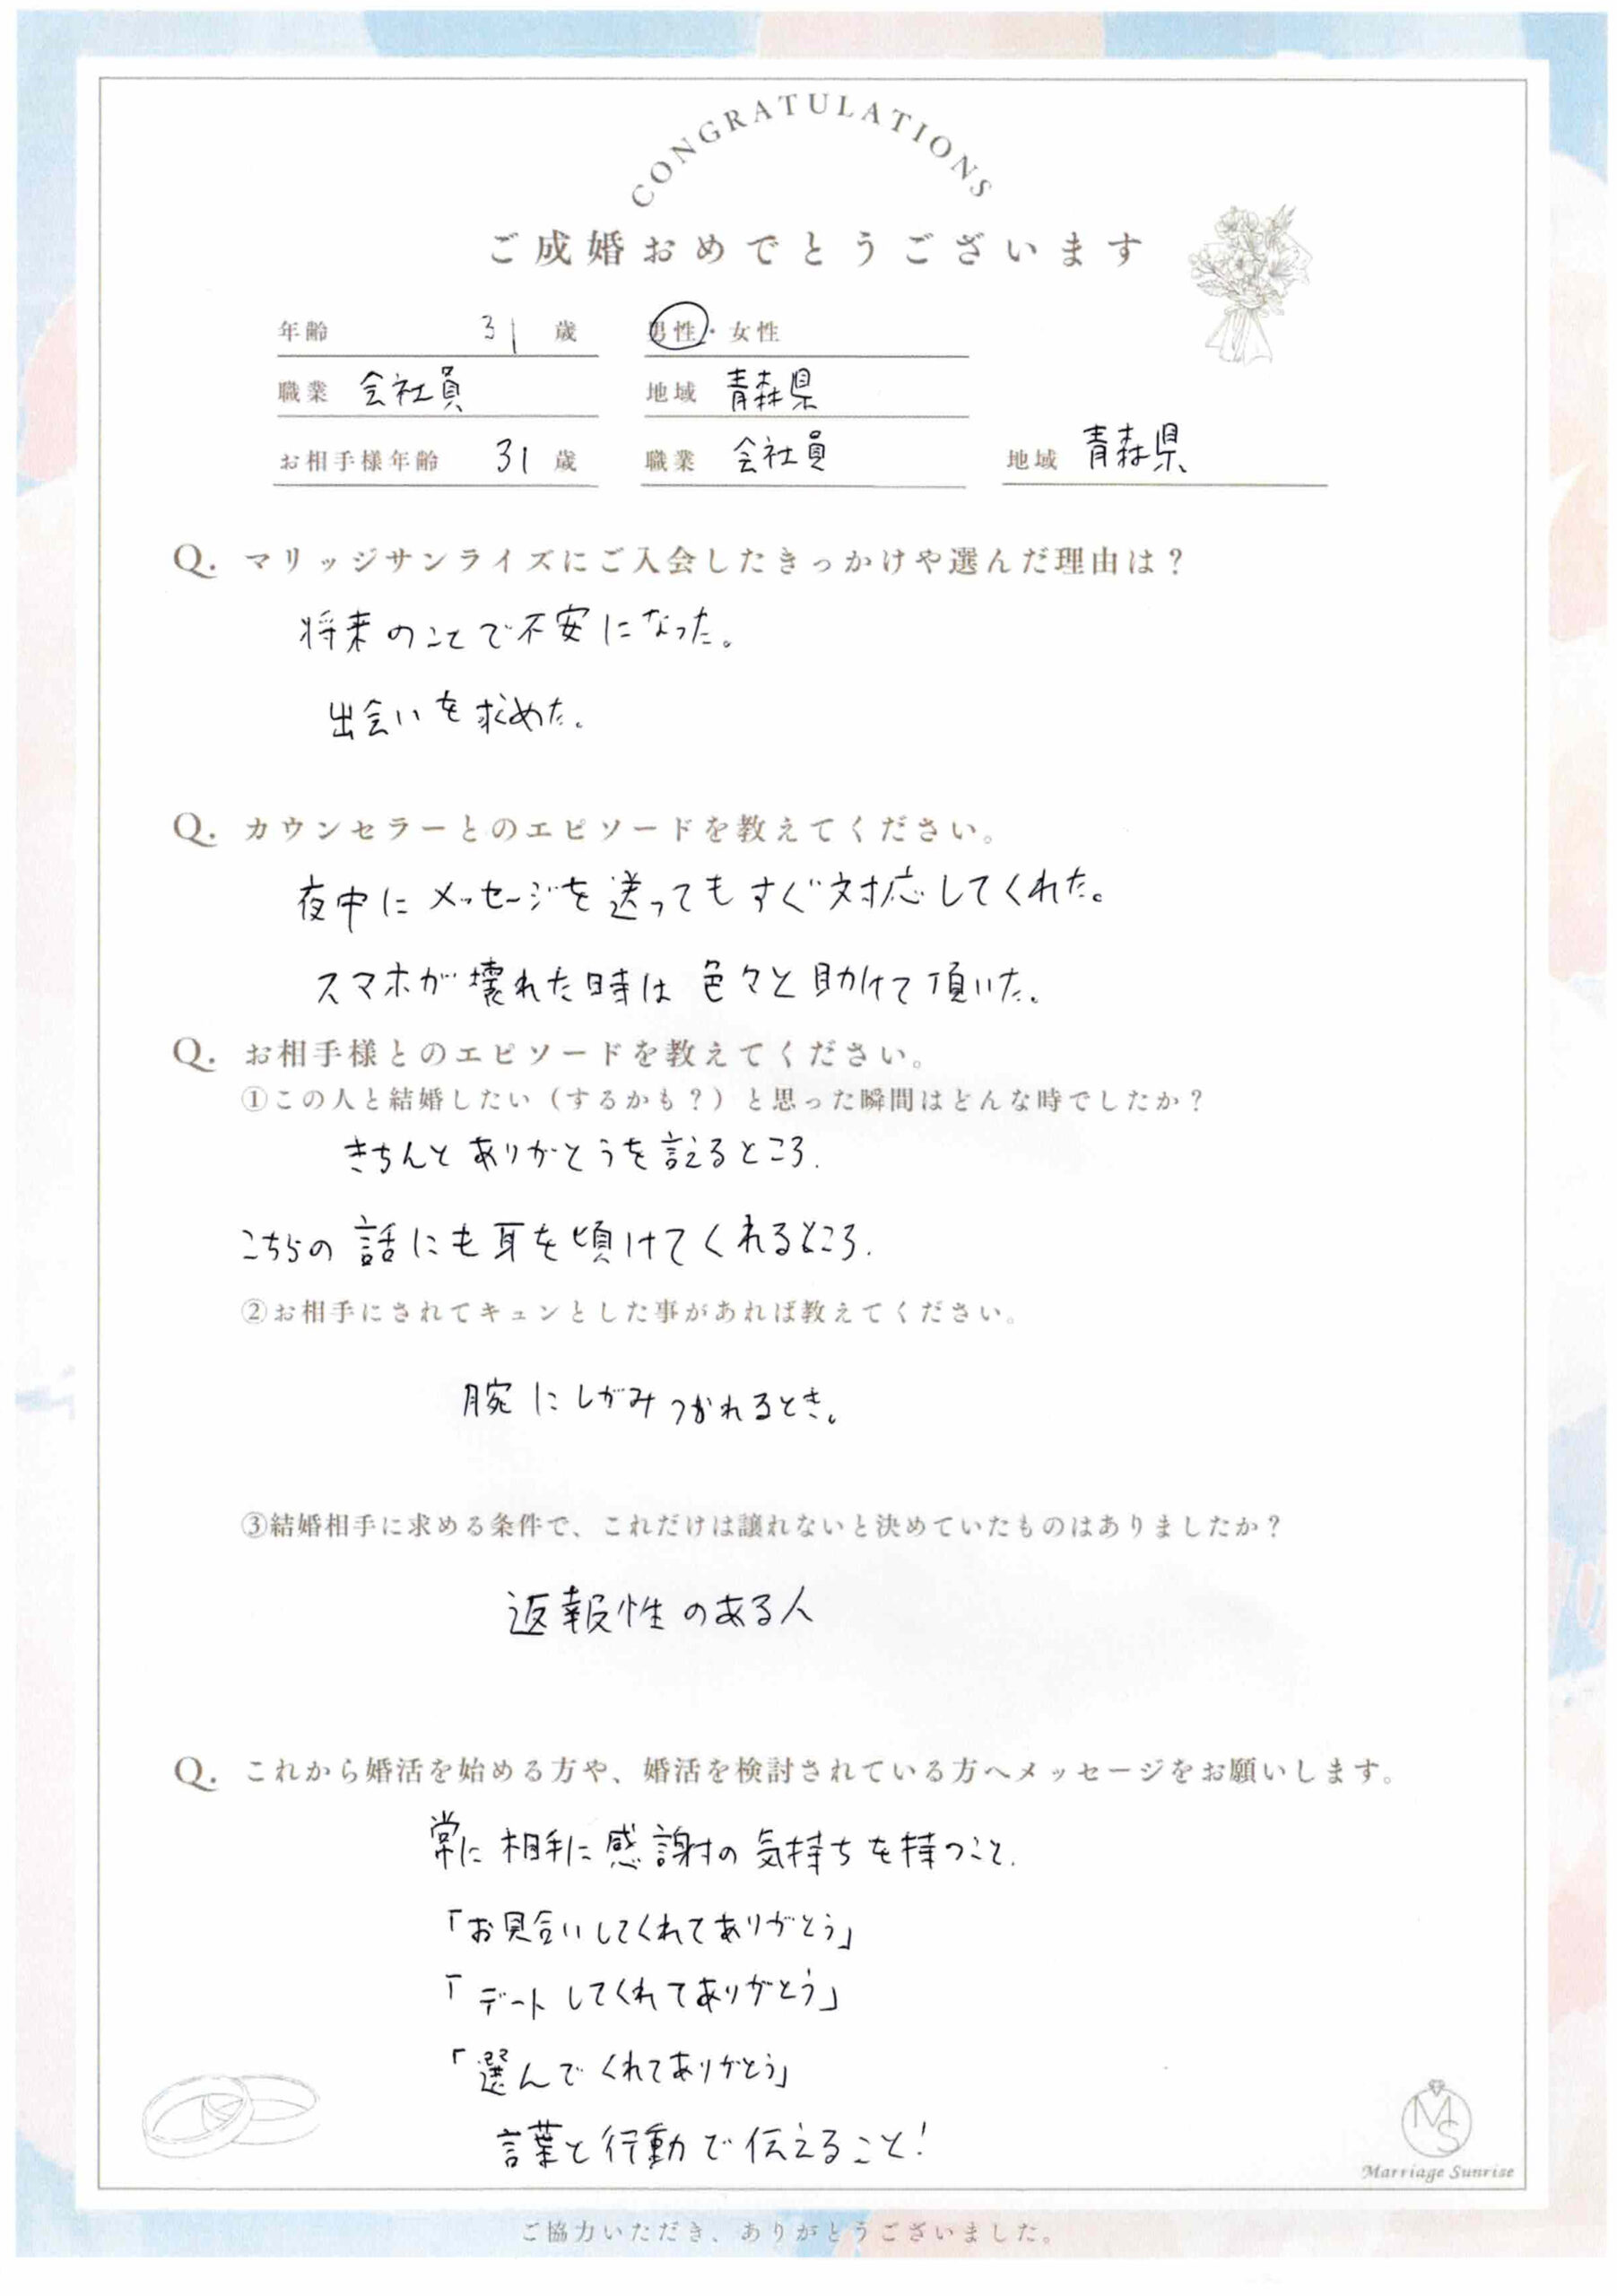 CONGRATULATIONS
ご成婚おめでとうございます
年齢 31 歳 男性・女性
職業 会社員 地域 青森県
お相手様年齢 31 歳 職業 会社員 地域 青森県
Q. マリッジサンライズにご入会したきっかけや選んだ理由は？
将来のことで不安になった。
出会いを求めた。
Q. カウンセラーとのエピソードを教えてください。
夜中にメッセージを送ってもすぐ対応してくれた。
スマホが壊れた時は色々と助けて頂いた。
Q. お相手様とのエピソードを教えてください。
①この人と結婚したい（するかも？）と思った瞬間はどんな時でしたか？
きちんとありがとうを言えるところ.
こちらの話にも耳を傾けてくれるところ.
②お相手にされてキュンとした事があれば教えてください。
腕にしがみつかれるとき。
③結婚相手に求める条件で、これだけは譲れないと決めていたものはありましたか？
返報性のある人
Q. これから婚活を始める方や、婚活を検討されている方へメッセージをお願いします。
常に相手に感謝の気持ちを持つこと.
「お見合いしてくれてありがとう」
「デートしてくれてありがとう」
「選んでくれてありがとう」
言葉と行動で伝えること!
MS
Marriage Sunrise
ご協力いただき、ありがとうございました。